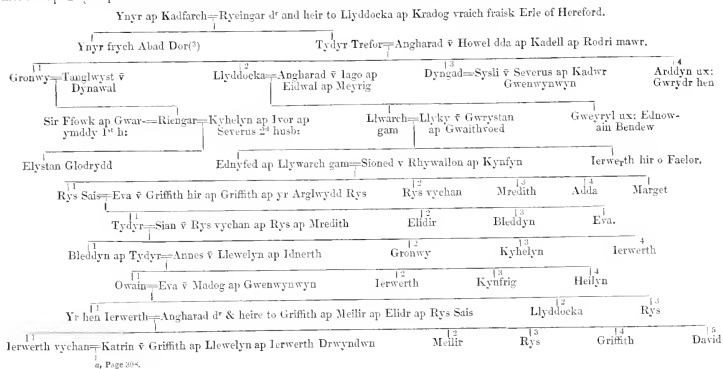 Ynyr ap Kadfarch=Ryeingar dr and heir to Llyddocka ap Kradog vraich fraisk Erle of Hereford.
Ynyr frych Abad Dor(3) Tydyr Trefor=Angharad v̄ Howel dda ap Kadell ap Rodri mawr.
1 2 3 4
Gronwy=Tanglwyst v̄ Llyddocka=Angharad v̄ Iago ap Dyngad=Sysli v̄ Severus ap Kadwr Arddyn ux:
Dynawal Eidwal ap Meyrig Gwenwynwyn Gwydr hen
Sir Ffowk ap Gwar-=Riengar=Kyhelyn ap Ivor ap Llwarch=Llyky v̄ Gwrystan Gweyryl ux: Ednow-
ymddy 1st h: Severus 2d husb: gam ap Gwaithvoed ain Bendew
Elystan Glodrydd Ednyfed ap Llywarch gam=Sioned v Rhywallon ap Kynfyn Ierwerth hir o Faelor.
1 2 3 4
Rys Sais=Eva v̄ Griffith hir ap Griffith ap yr Arglwydd Rys Rys vychan Mredith Adda Marget
1 2 3
Tydyr=Sian v̄ Rys vychan ap Rys ap Mredith Elidir Bleddyn Eva.
1 2 3 4
Bleddyn ap Tydyr=Annes v̄ Llewelyn ap Idnerth Gronwy Kyhelyn Ierwerth
1 2 3 4
Owain=Eva v̄ Madog ap Gwenwynwyn Ierwerth Kynfrig Heilyn
1 2 3
Yr hen Ierwerth=Angharad dr & heire to Griffith ap Meilir ap Elidr ap Rys Sais Llyddocka Rys
1 2 3 4 5
Ierwerth vychan=Katrin v̄ Griffith ap Llewelyn ap Ierwerth Drwyndwn Meilir Rys Griffith David
a, Page 308.